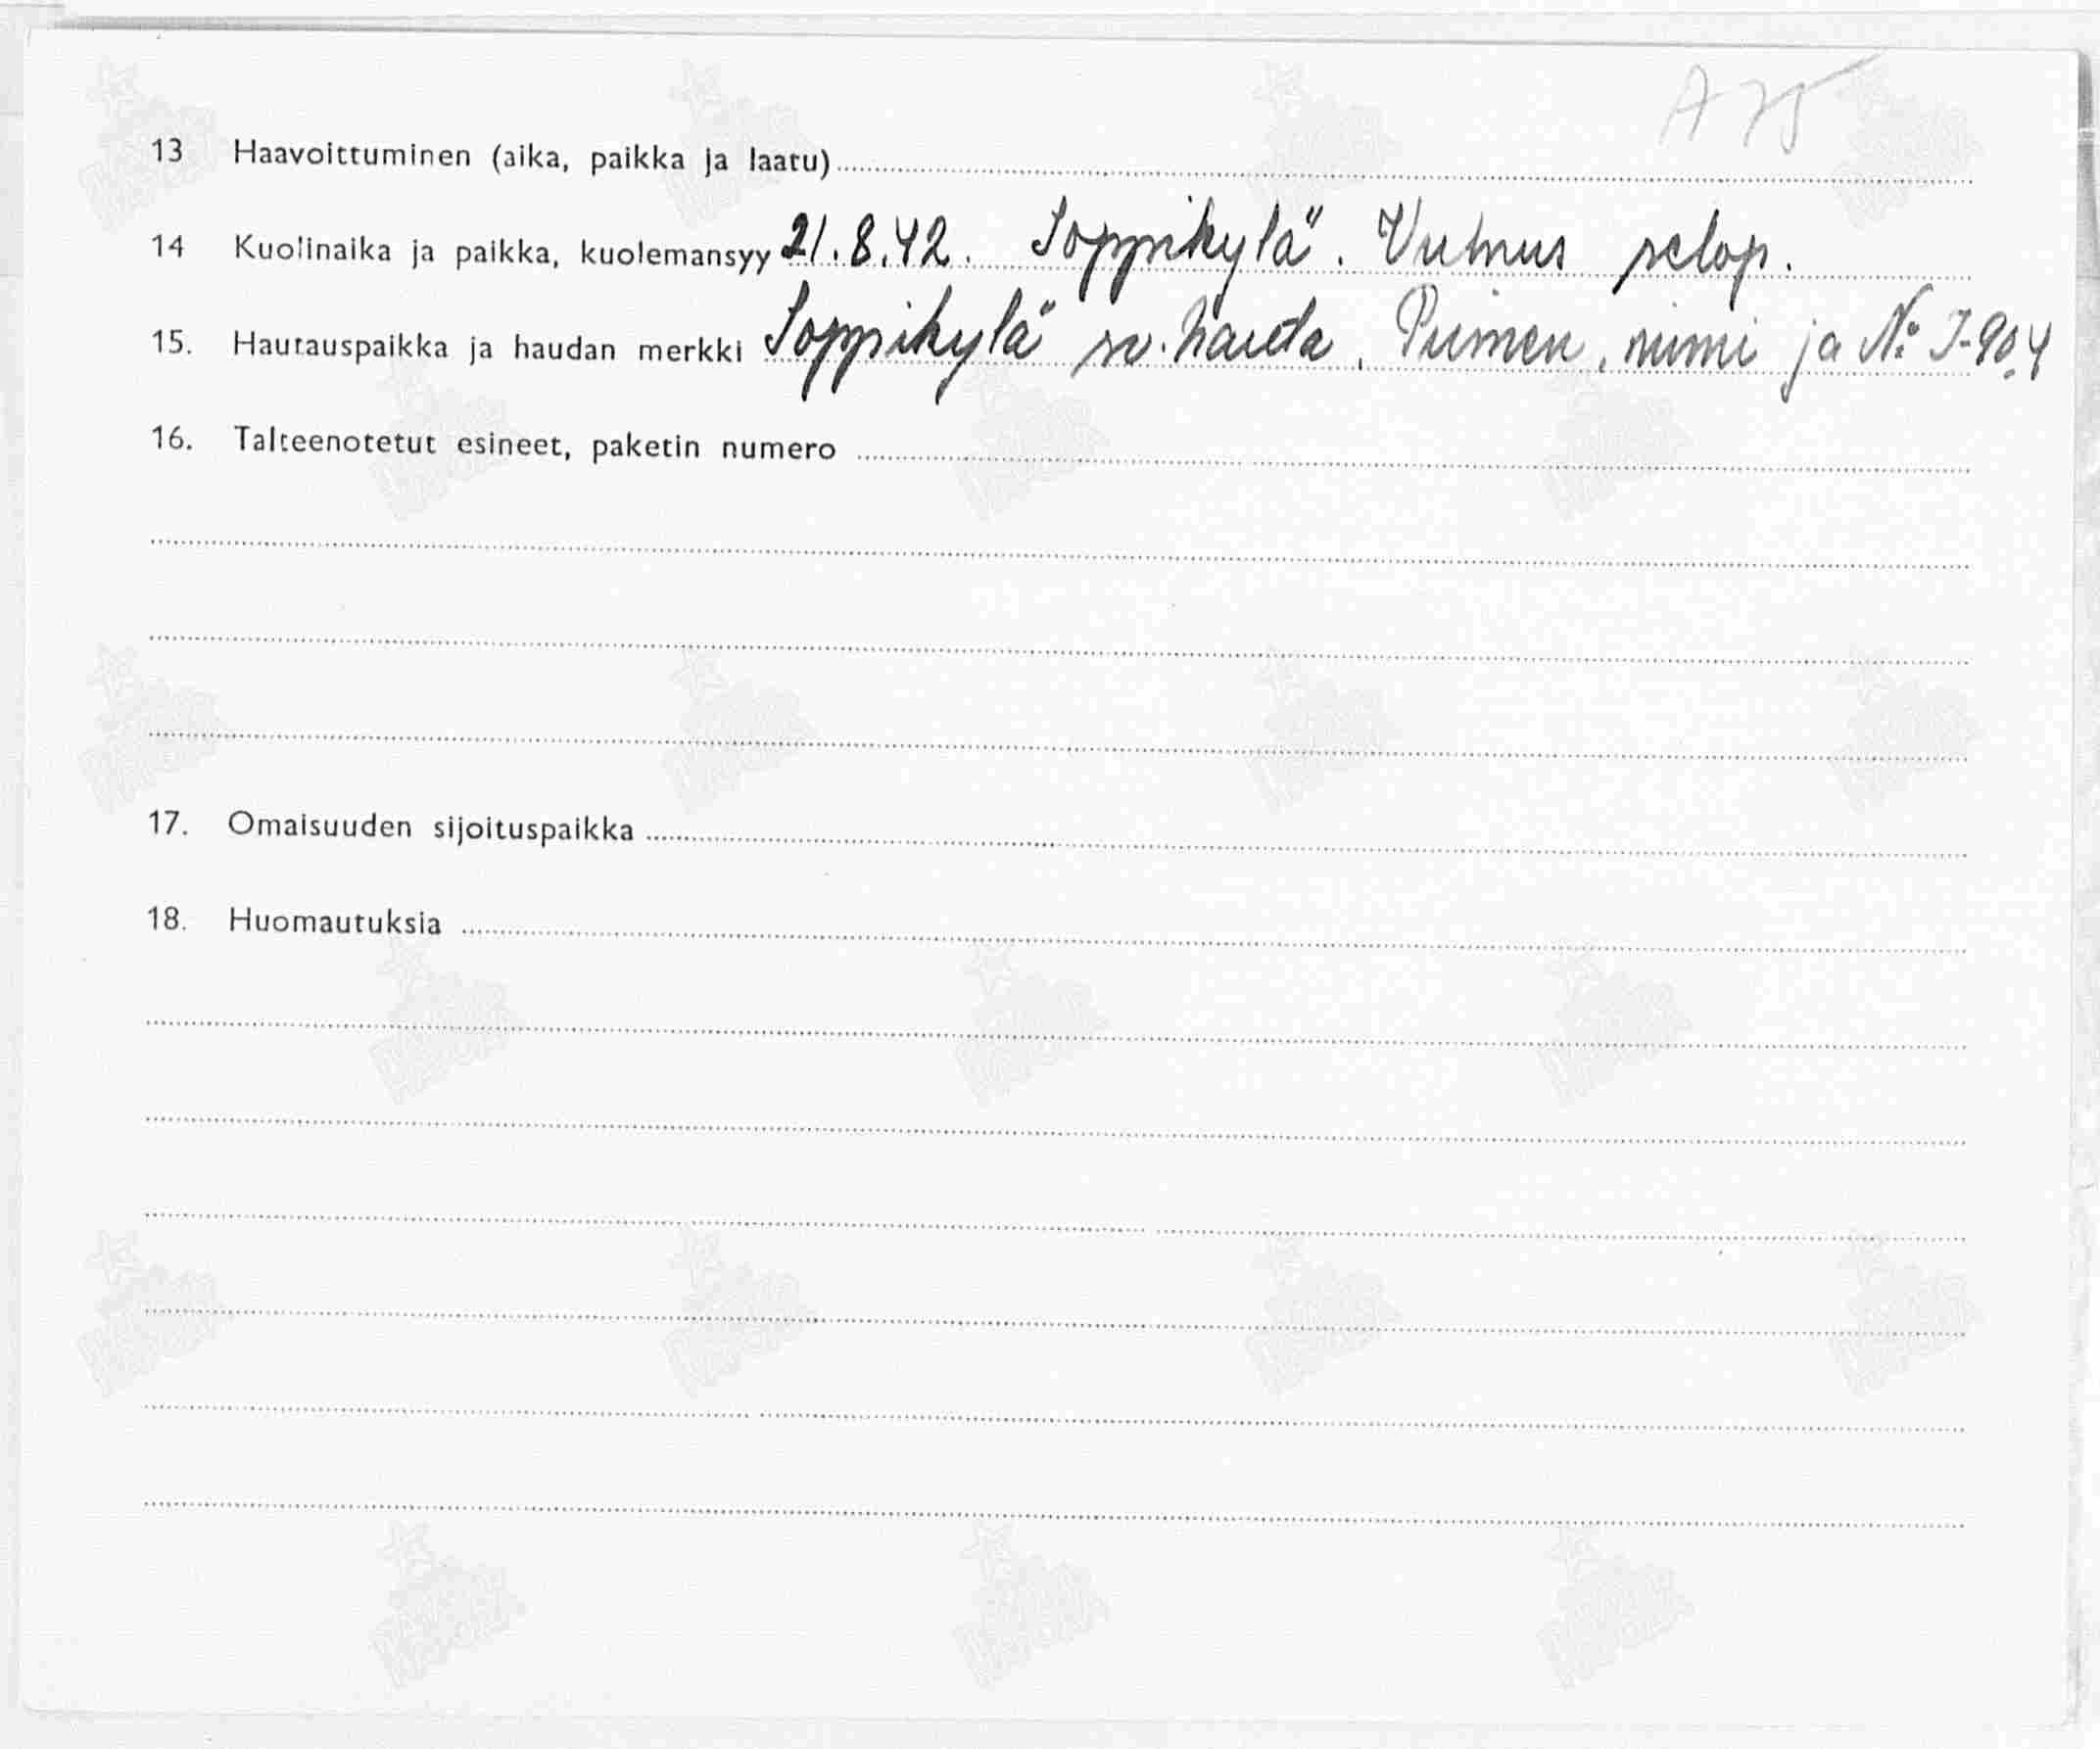 A 75
13 Haavoittuminen (aika, paikka ja laatu)
14 Kuolinaika ja paikka, kuolemansyy 21.8.42. Soppikylä. Vulnus sclop.
15. Hautauspaikka ja haudan merkki Soppikylä sv. hauta, Puinen, nimi ja No I-904
16. Talteenotetut esineet, paketin numero
17. Omaisuuden sijoituspaikka
18. Huomautuksia